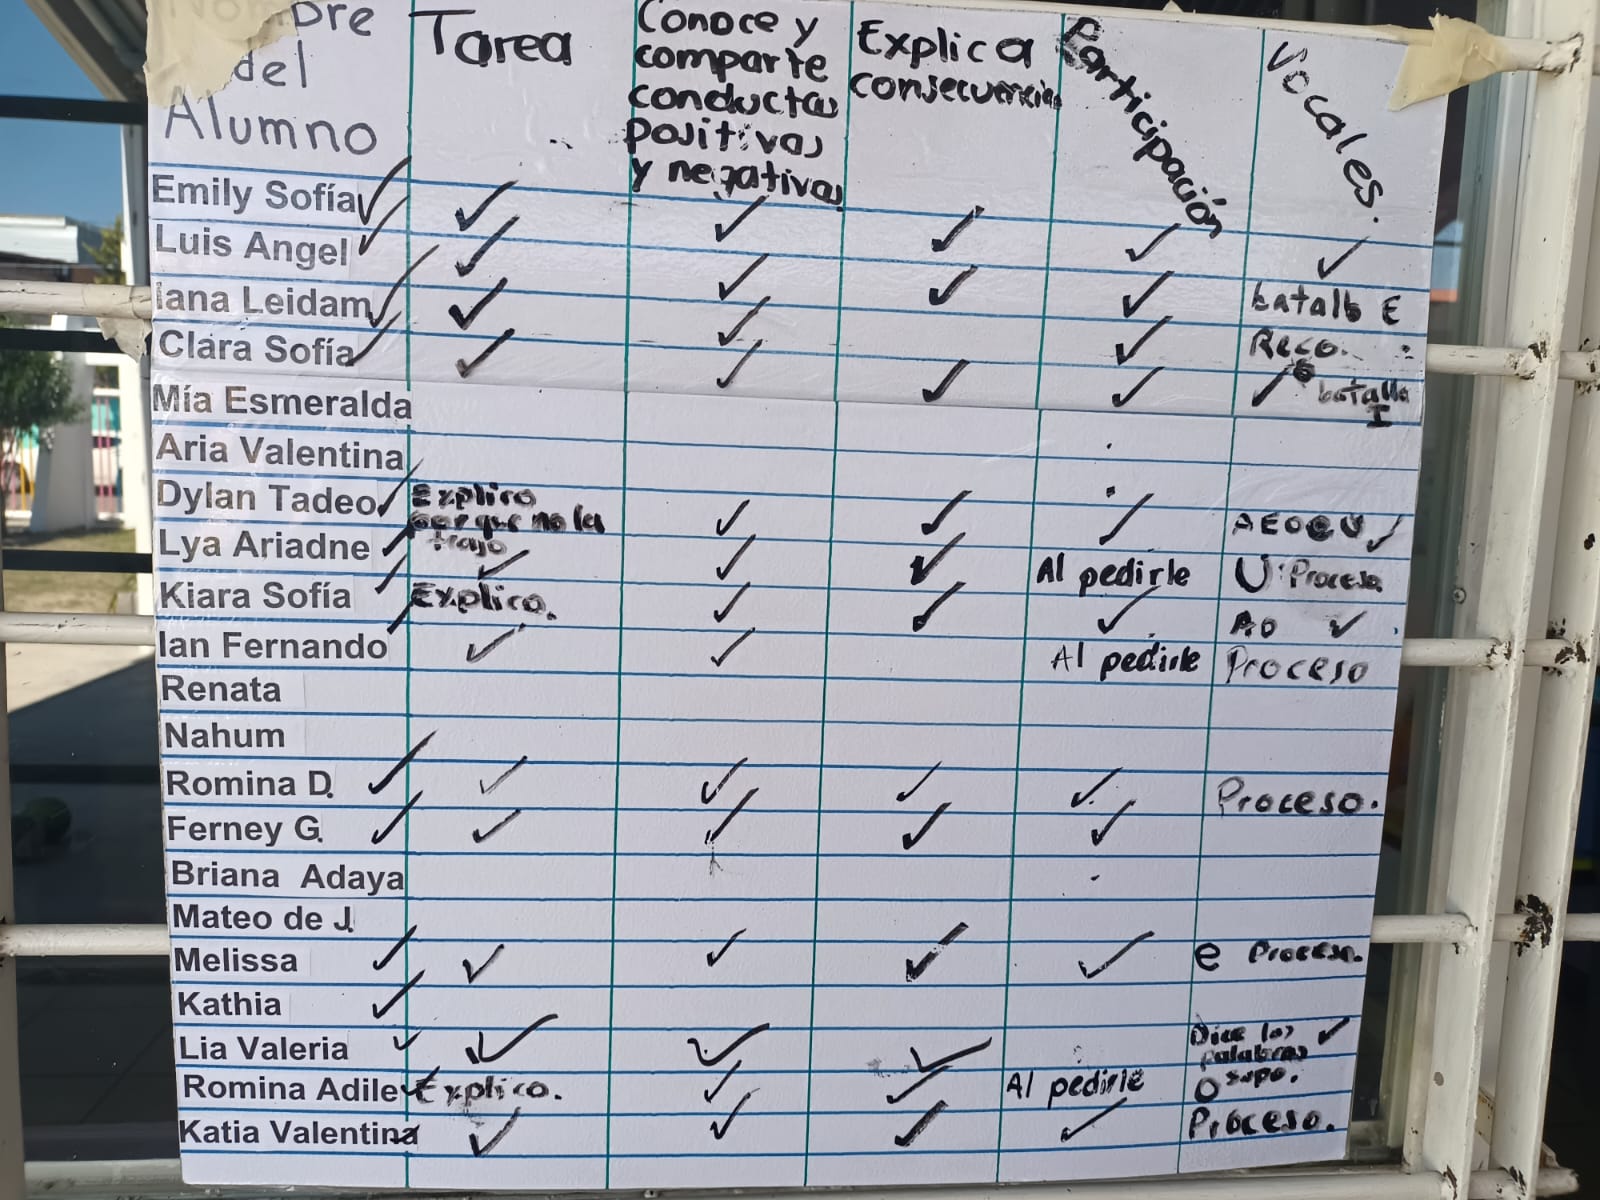 Nombre del Alumno Tarea Conoce y comparte conductas positivas y negativas Explica consecuencias Participación Vocales.
Emily Sofía ✓ ✓ ✓ ✓ ✓ ✓
Luis Angel ✓ ✓ ✓ ✓ ✓ batalló E
Iana Leidam ✓ ✓ ✓ ✓ Reco.
Clara Sofía ✓ ✓ ✓ ✓ ✓ ✓ batalla I
Mía Esmeralda
Aria Valentina
Dylan Tadeo ✓ Explico por que no la trajo ✓ ✓ ✓ AEO U ✓
Lya Ariadne ✓ ✓ ✓ ✓ Al pedirle U Proceso
Kiara Sofía ✓ Explico. ✓ ✓ ✓ AO ✓
Ian Fernando ✓ ✓ ✓ Al pedirle Proceso
Renata
Nahum
Romina D. ✓ ✓ ✓ ✓ ✓ Proceso.
Ferney G. ✓ ✓ ✓ ✓ ✓
Briana Adaya
Mateo de J.
Melissa ✓ ✓ ✓ ✓ ✓ e Proceso.
Kathia ✓
Lia Valeria ✓ ✓ ✓ ✓ Dice las palabras ✓
Romina Adile ✓ Explico. ✓ ✓ Al pedirle O supo.
Katia Valentina ✓ ✓ ✓ ✓ ✓ Proceso.